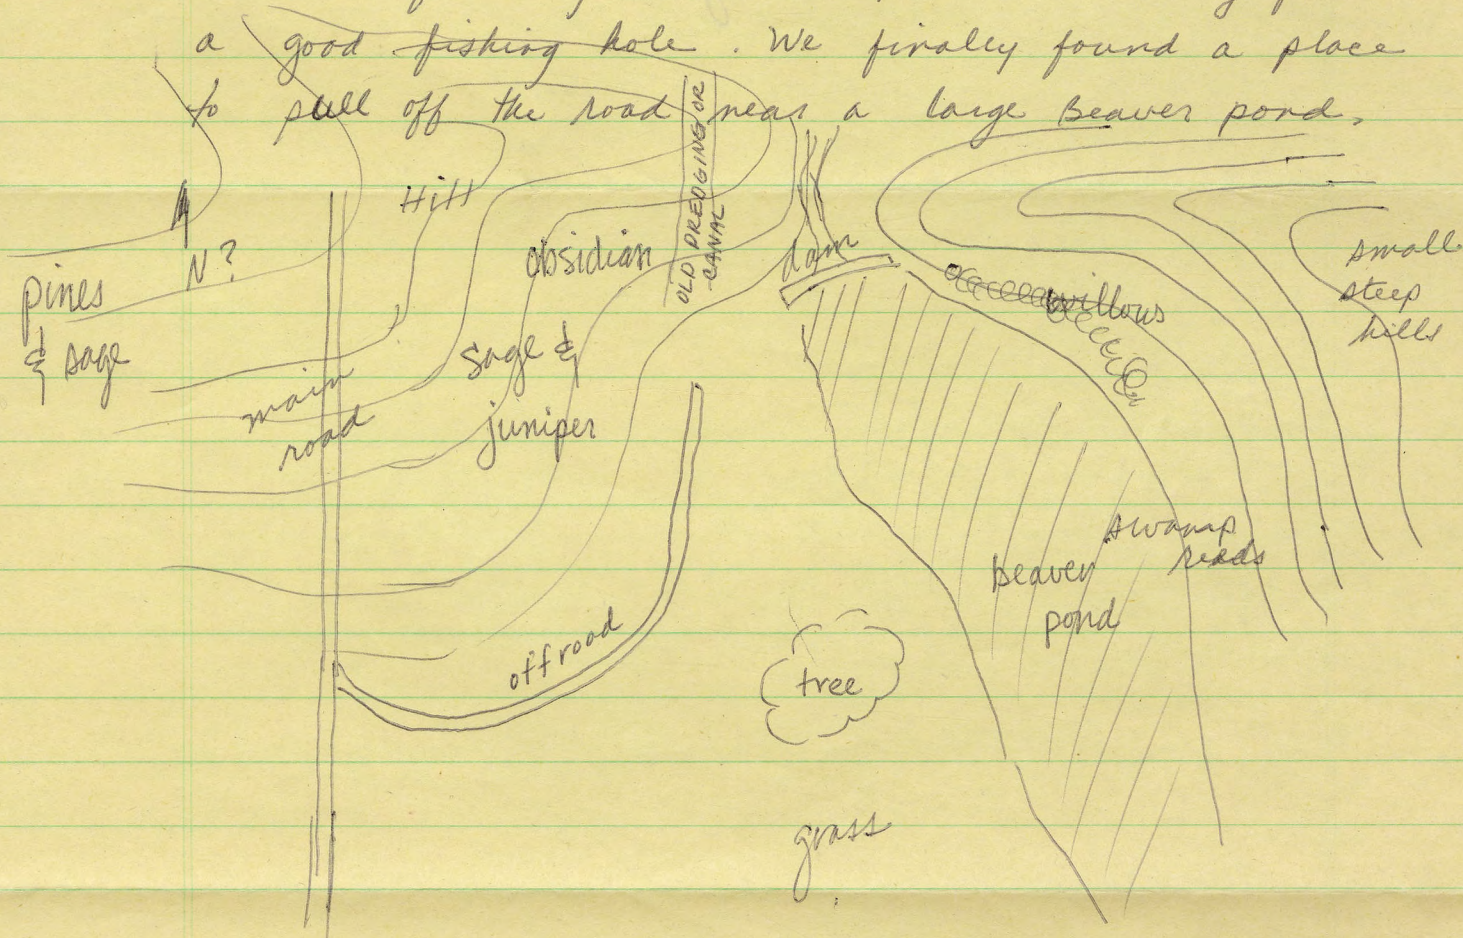 a good fishing hole. We finally found a place
to pull off the road near a large Beaver pond.
N?
pines
& sage
Hill
obsidian
OLD DREDGING OR
CANAL
dam
willows
small
steep
hills
main
road
sage &
juniper
swamp
reads
beaver
pond
off road
tree
grass